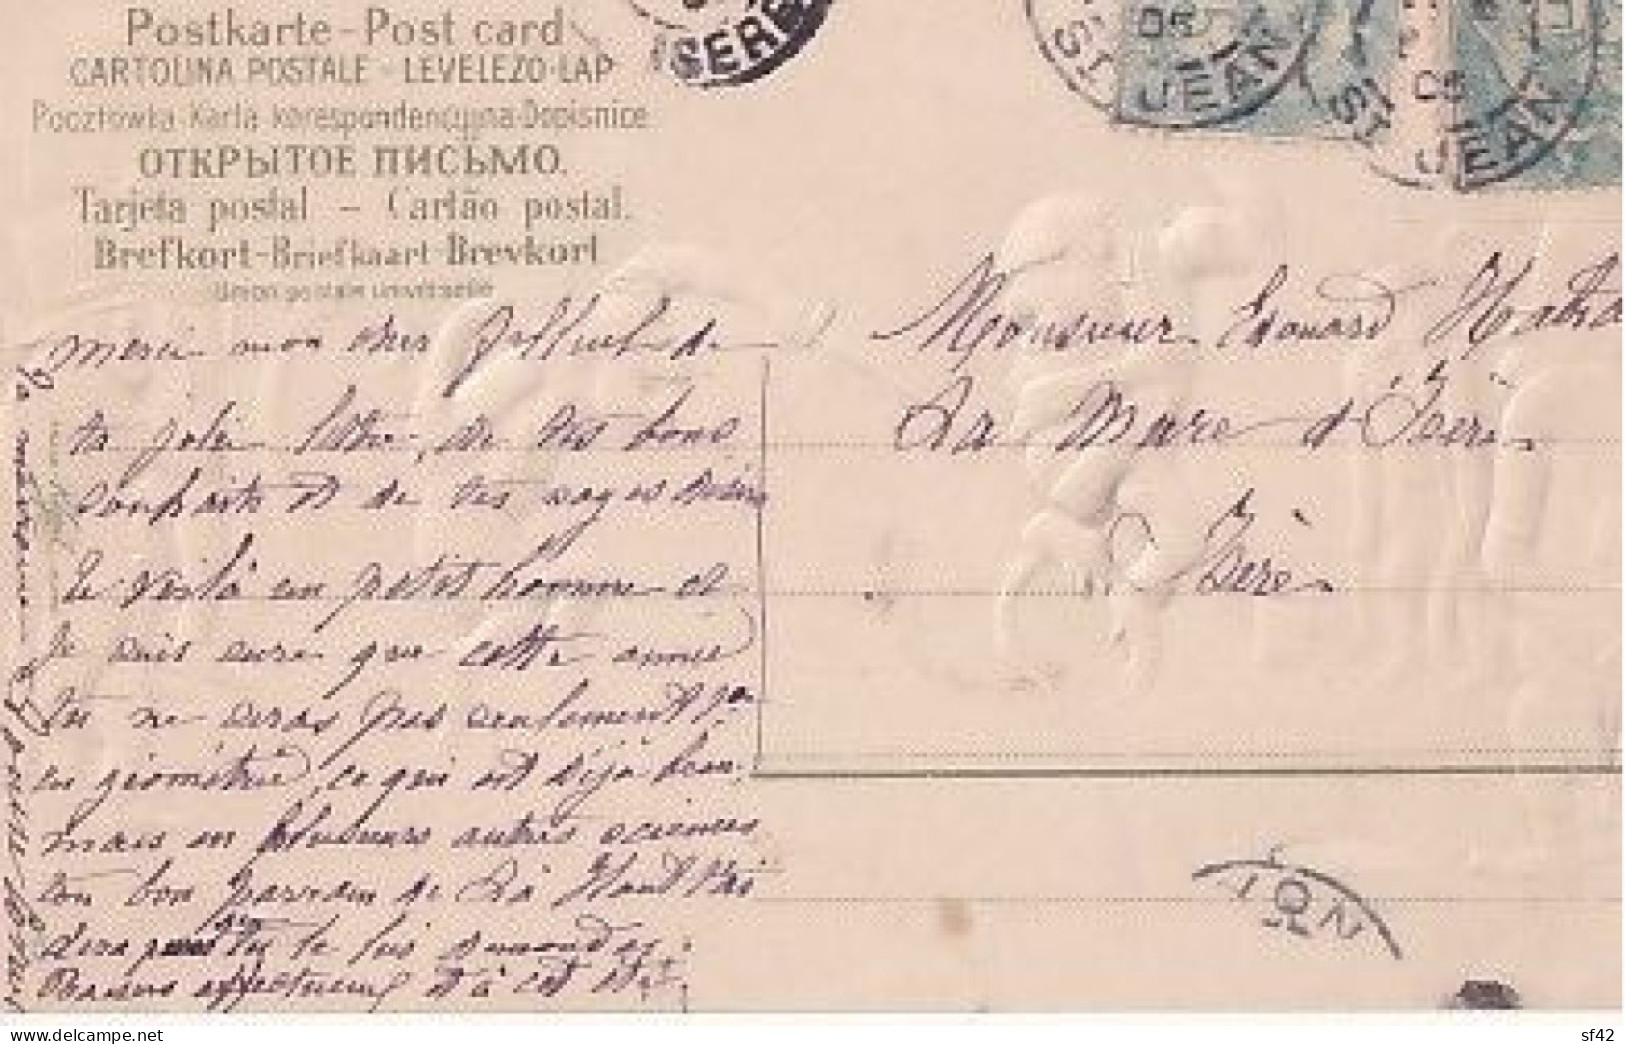 Postkarte - Post card
CARTOLINA POSTALE - LEVELEZO-LAP
Pocztówka-Karta korespondencyjna-Dopisnice
ОТКРЫТОЕ ПИСЬМО.
Tarjeta postal - Cartão postal.
Brefkort-Briefkaart-Brevkort
Union postale universelle
SERE
05
ST JEAN
05
ST JEAN
Monsieur Edouard
La Mure d'Isère
Isère
merci mon cher de
ta jolie lettre, de tes bons
souhaits et de tes sages désirs
te voilà un petit homme et
je suis sure que cette année
tu ne seras pas seulement
en géométrie, ce qui est déjà beau,
mais en plusieurs autres sciences
ton bon parrain de Là Haut
tu le lui demandes
Baisers affectueux et à cet été
ION
www.delcampe.net
sf42